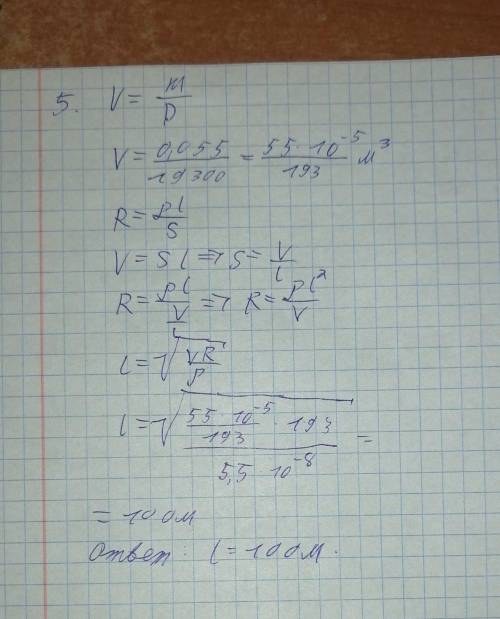 5. V = m/ρ
V = 0,055/19300 = 55·10⁻⁵/193 м³
R = ρl/S
V = Sl => S = V/l
R = ρl/(V/l) => R = ρl²/V
l = √(VR/ρ)
l = √((55·10⁻⁵/193 · 193)/(5,5·10⁻⁸)) =
= 100м
Ответ: l = 100м.